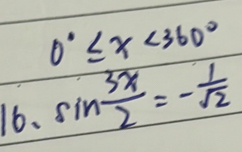 0° ≤ x < 360°
16、 sin 3x/2 = - 1/√2